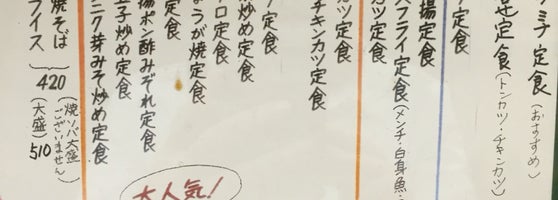 ミナ定食(おすすめ)
せ定食(トンカツ・チキンカツ)
定食
揚定食
スフライ定食(メンチ・白身魚・
カツ定食
定食
チキンカツ定食
炒め定食
ロ定食
ょうが焼定食
定食
揚ポン酢みぞれ定食
玉子炒め定食
ニク芽みそ炒め定食
焼そば 420 (焼ソバ大盛ございません)
ライス (大盛) 510
大人気!